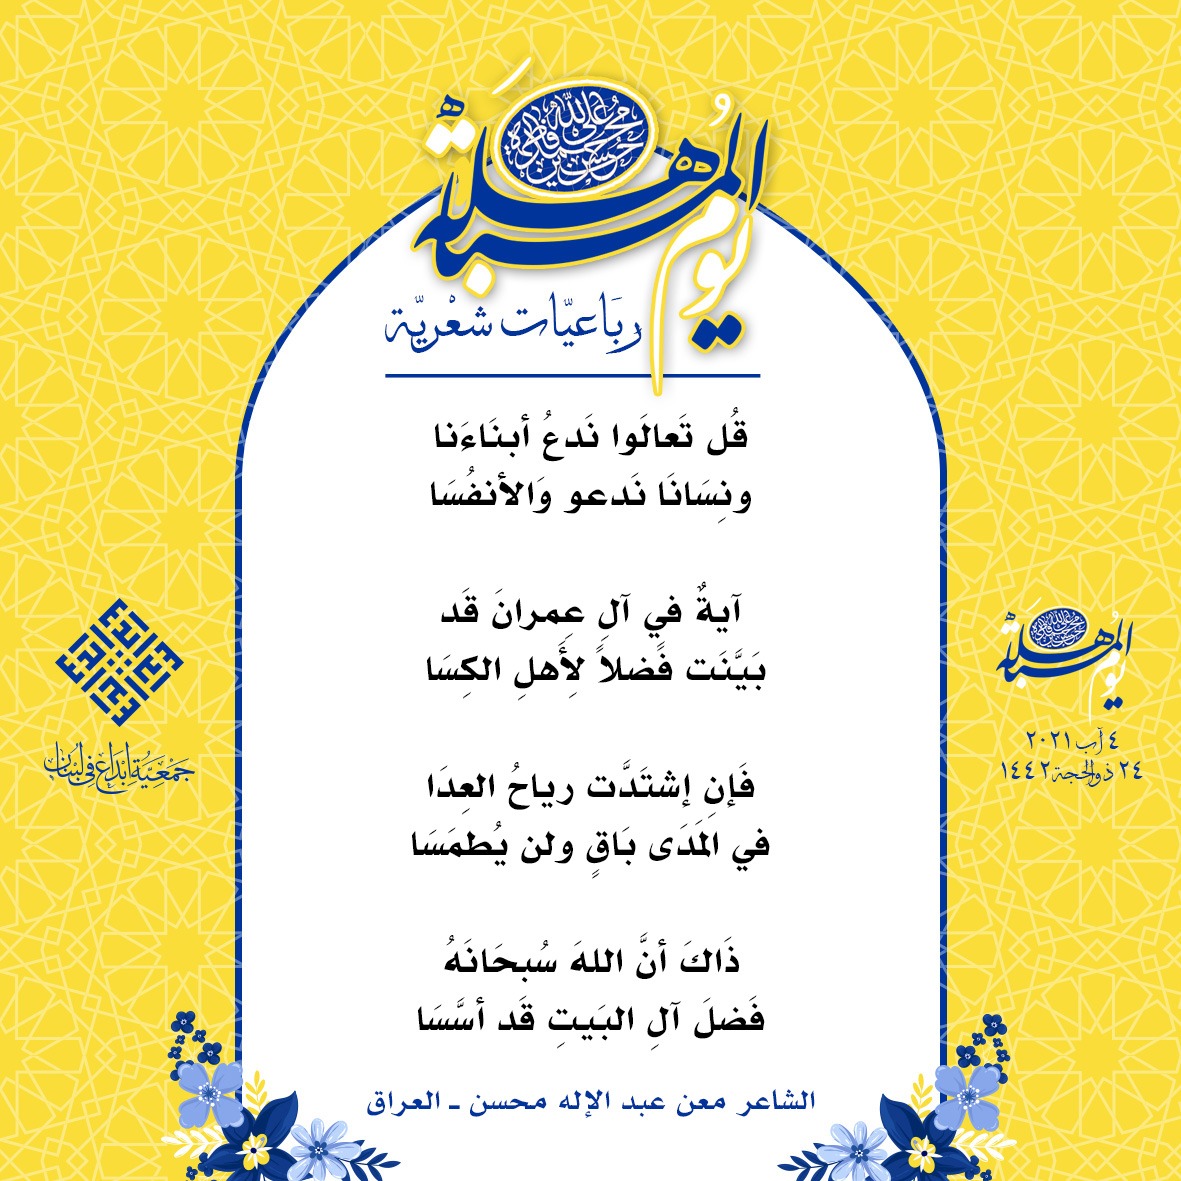 يوم المباهلة
محمد علي فاطمة حسن حسين
رُبَاعيّات شعْريّة
قُل تَعالَوا نَدعُ أبنَاءَنا
ونِسَانَا نَدعو وَالأنفُسَا
آيةٌ في آلِ عِمرانَ قَد
بَيَّنَت فَضلاً لِأَهلِ الكِسَا
فَإنِ إشتَدَّت رياحُ العِدَا
في المَدَى بَاقٍ ولن يُطمَسَا
ذَاكَ أنَّ اللهَ سُبحَانَهُ
فَضلَ آلِ البَيتِ قَد أسَّسَا
الشاعر معن عبد الإله محسن ـ العراق
يوم المباهلة
٤ آب ٢٠٢١
٢٤ ذو الحجة ١٤٤٢
جمعيّة إبداع في لبنان